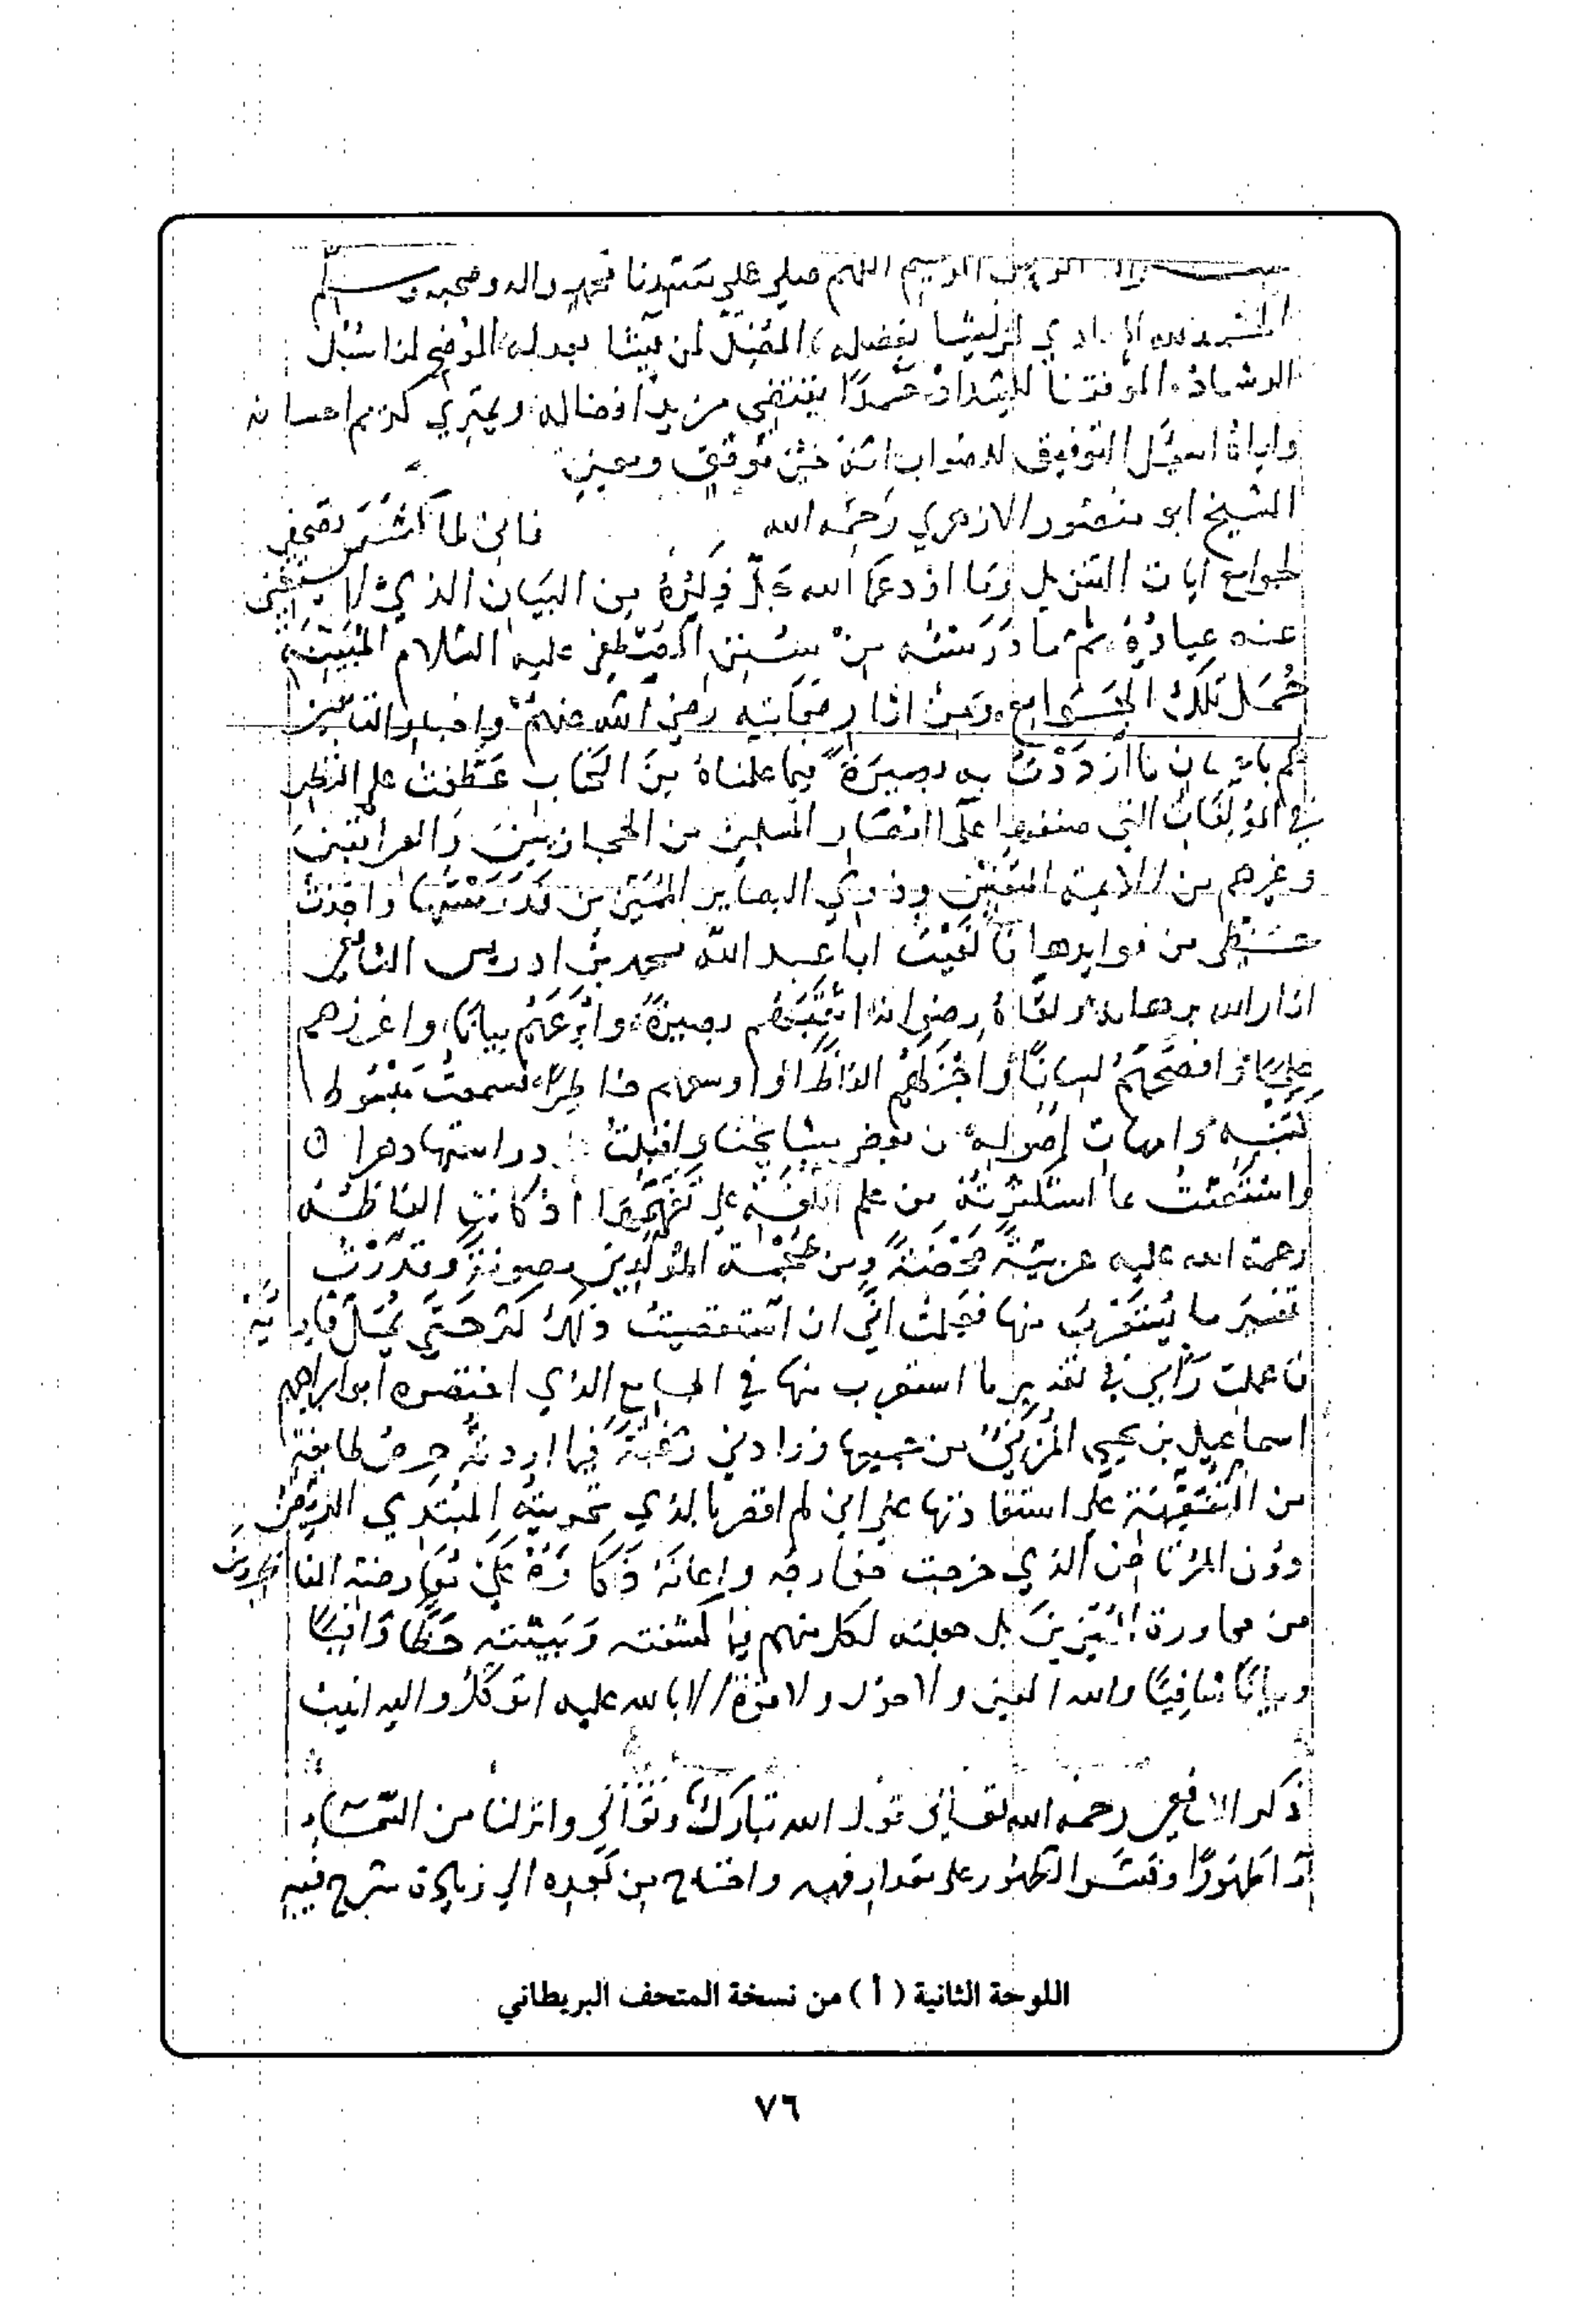 بسم الله الرحمن الرحيم اللهم صلي علي سيدنا محمد واله وصحبه وسلم
الحمد لله الهادي لمن يشا بفضله المضل لمن يشا بعدله الموضح لنا سبل
الرشاد الموفقنا للسداد حمدا يقتضي مزيد افضاله ويمتري كريم احسانه
واياه اسئل التوفيق للصواب انه خير موفق ومعين
الشيخ ابو منصور الازهري رحمه الله فاني لما تصفحي
لجوامع ايات التنزيل وما اودعها الله جل ذكره من البيان الذي لا يستغني
عنه عباده ثم ما درسته من سنن المصطفي عليه السلام المبينة
جمل تلك الجوامع ومن اثار صحابته رضي الله عنهم واخبار التابعين
لهم باحسان ما ازددت به بصيرة فيما علمناه من الكتاب عطفت علي النظر
في المؤلفات التي صنفها علما امصار المسلمين من الحجازيين والعراقيين
وغيرهم من الايمة المتقنين وذوي البصاير المميزين فدرستها واخذت
حظي من فوايدها فالفيت ابا عبد الله محمد بن ادريس الشافعي
انار الله برهانه ولقاه رضوانه اثقبهم بصيرة وابرعهم بيانا واغزرهم
علما وافصحهم لسانا واجزلهم الفاظا واوسعهم خاطرا فسمعت مبسوط
كتبه وامهات اصوله من بعض مشايخنا واقبلت دراستها دهرا
واستعنت بما استكثرته من علم اللغة علي تفهمها اذ كانت الفاظه
رحمة الله عليه عربية محضة ومن عجمة المولدين مصونة وقدرت
تفسير ما يستغرب منها فعلمت اني ان استقصيت ذلك كثر حتي يمل قاريه
فاعملت رأيي في تفسير ما استغرب منها في الجامع الذي اختصره ابو ابراهيم
اسماعيل بن يحيي المزني من جميعها وزادني رغبة فيما اردته حرص طايفة
من المتفقهة علي استفادتها علي اني لم اقصر بالذي المبتدي الريض
دون المرتاض الذي خرجت
من محاورة المميزين بل جعلته لكل منهم فيما كشفته وبينته حظا وافيا
وبيانا شافيا والله المعين ولا حول ولا قوة الا بالله عليه اتوكل واليه انيب
ذكر الشافعي رحمه الله تعالي قول الله تبارك وتعالي وانزلنا من السماء
ماء طهورا وفسر الطهور علي مقدار فهمه واحتاج من بعده الي زيادة شرح فيه
اللوحة الثانية ( أ ) من نسخة المتحف البريطاني
٧٦